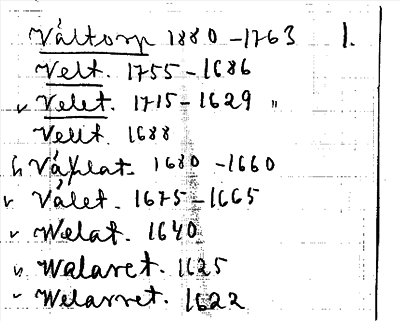 Våltorp 1880-1763 1.
Velt. 1755-1686
v Velet. 1715-1629 "
Vellt 1688
Våhlat. 1680-1660
v Vålet. 1675-1665
v Welat. 1640
v Walaret. 1625
v Welarret. 1622